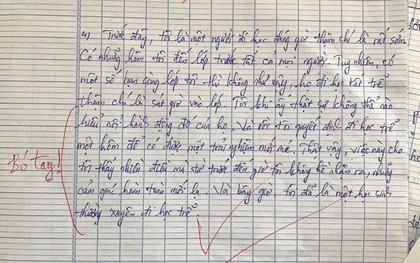 4) Trước đây, tôi là một người đi học đúng giờ thậm chí là rất sớm.
Có những hôm tôi đến lớp trước tất cả mọi người. Tuy nhiên, có
một số bạn cùng lớp tôi thì không như vậy, họ đi học rất trễ
thậm chí là sát giờ vào lớp. Tôi khi ấy thật sự không thể nào
hiểu nổi hành động đó của họ. Và rồi tôi quyết định đi học trễ
một hôm để có được một trải nghiệm mới mẻ. Thật vậy, việc này cho
tôi thấy nhiều điều mà từ trước đến giờ tôi không hề nhận ra, những
cảm giác hoàn toàn mới lạ. Và bây giờ tôi đã là một học sinh
thường xuyên đi học trễ.
Bó tay!